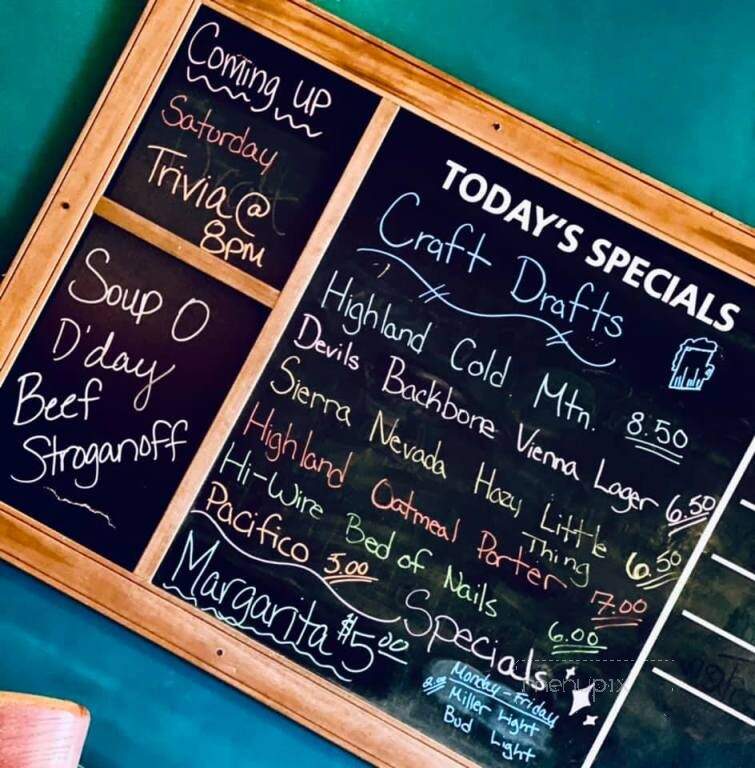 Coming UP
Saturday
Trivia @
8pm
Soup O
D'day
Beef
Stroganoff
TODAY'S SPECIALS
Craft Drafts
Highland Cold Mtn. 8.50
Devils Backbone Vienna Lager 6.50
Sierra Nevada Hazy Little
Thing 6.50
Highland Oatmeal Porter 7.00
Hi-Wire Bed of Nails 6.00
Pacifico 5.00
Specials
Margarita $5.00
Monday-Friday
Miller Light
Bud Light
menupix